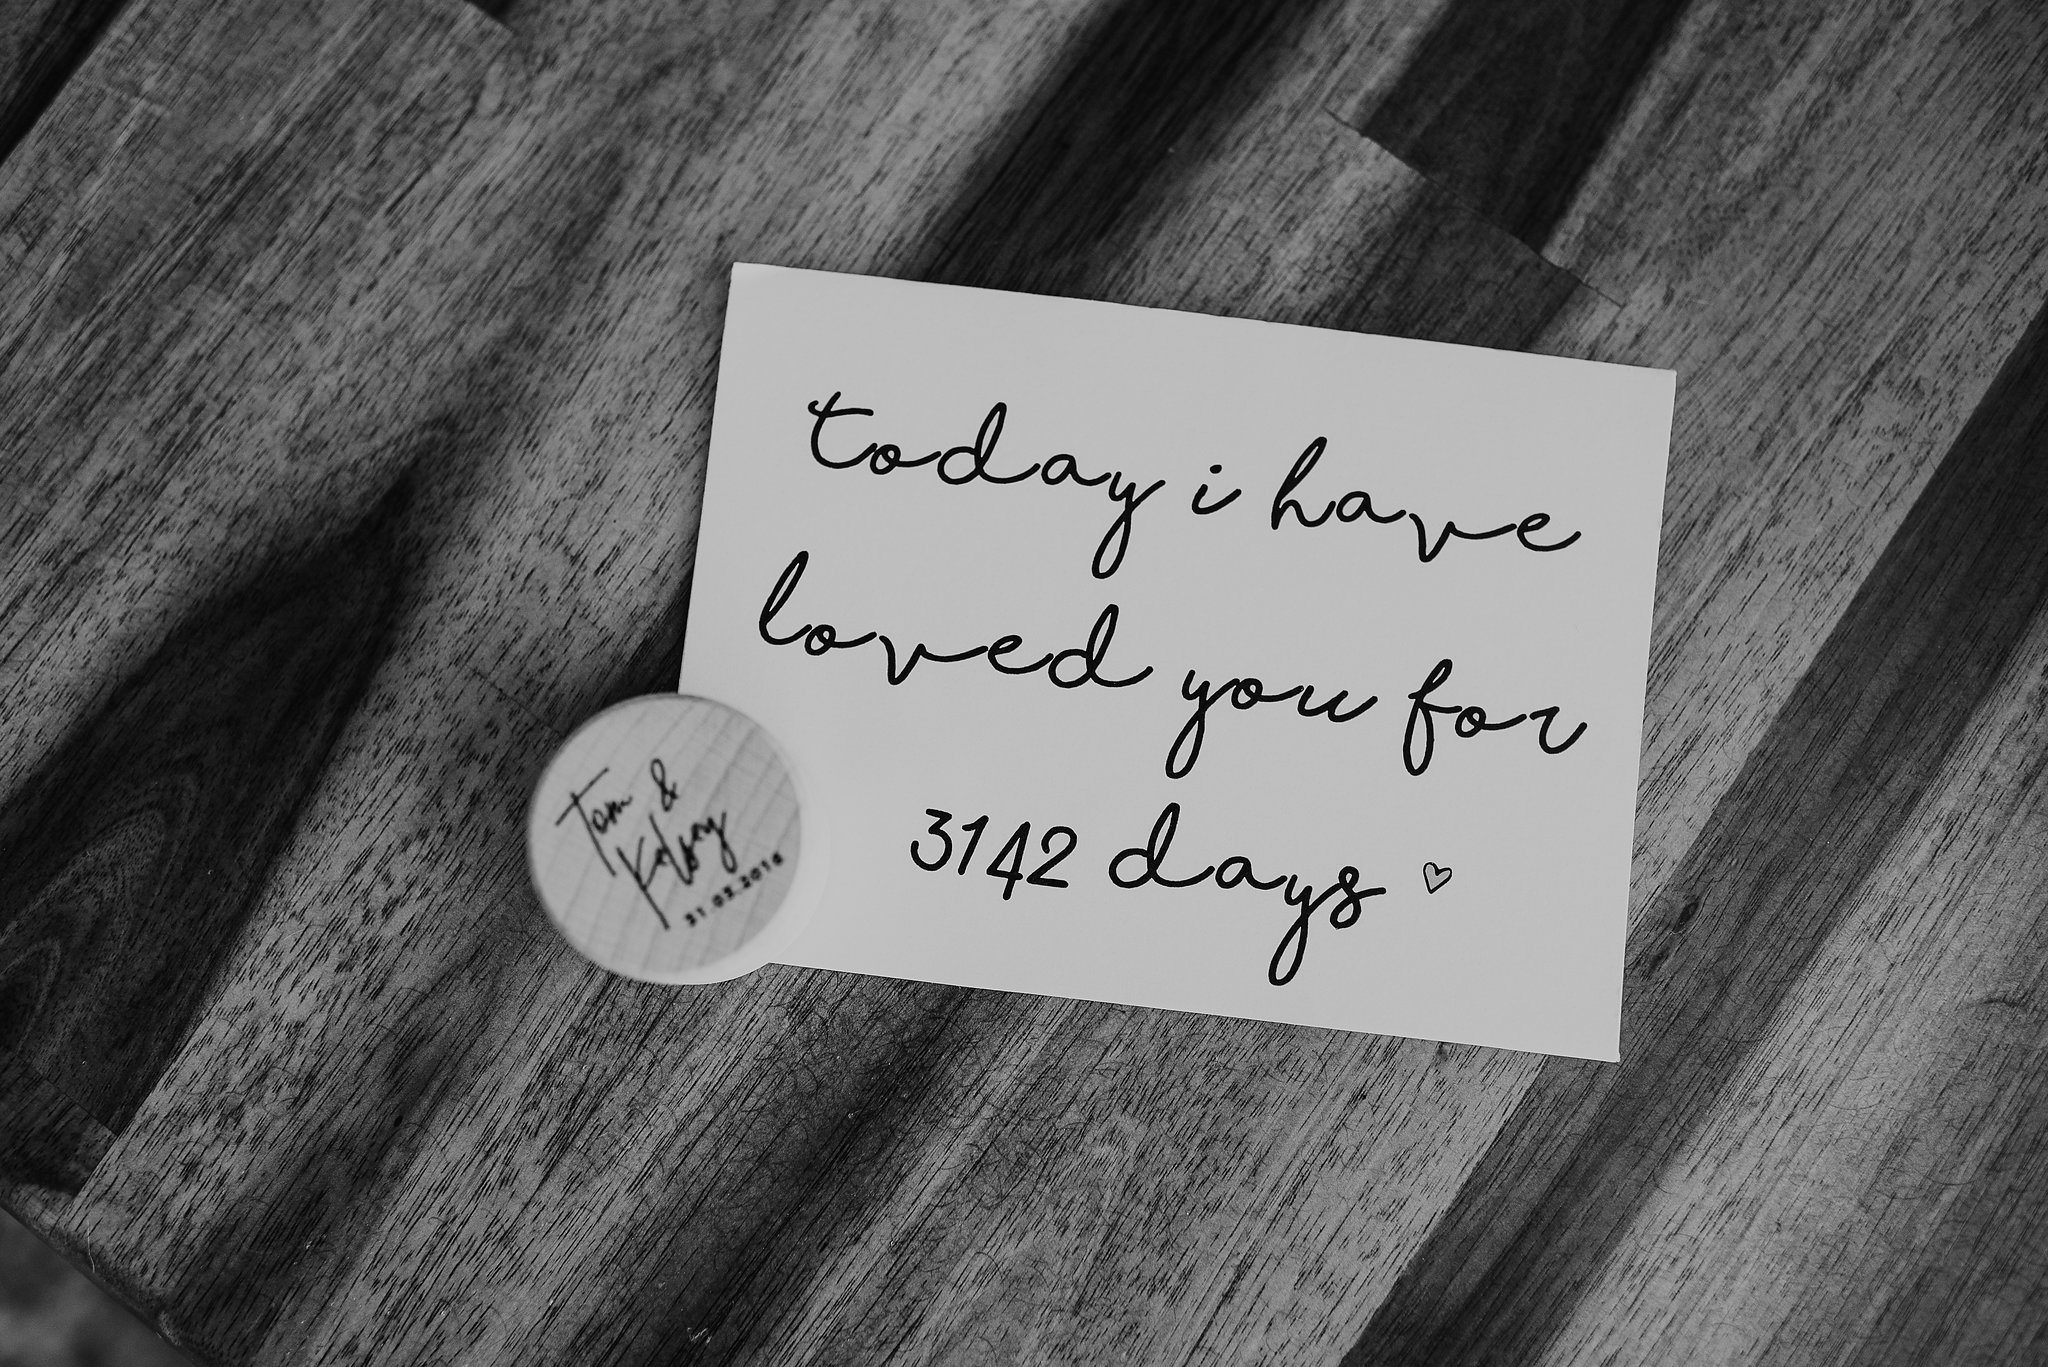 today i have
loved you for
3142 days ♡
Tom &
Kelsey